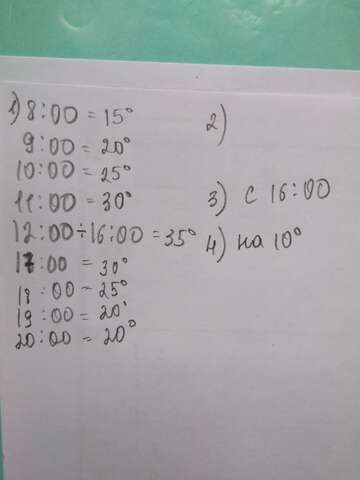 1) 8:00 = 15°
9:00 = 20°
10:00 = 25°
11:00 = 30°
12:00÷16:00 = 35°
17:00 = 30°
18:00 - 25°
19:00 = 20°
20:00 = 20°
2)
3) с 16:00
4) на 10°